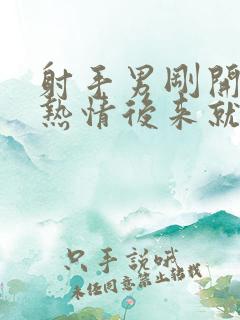 射手男剛開
熱情後來就
只手說哦
未经同意禁止转载